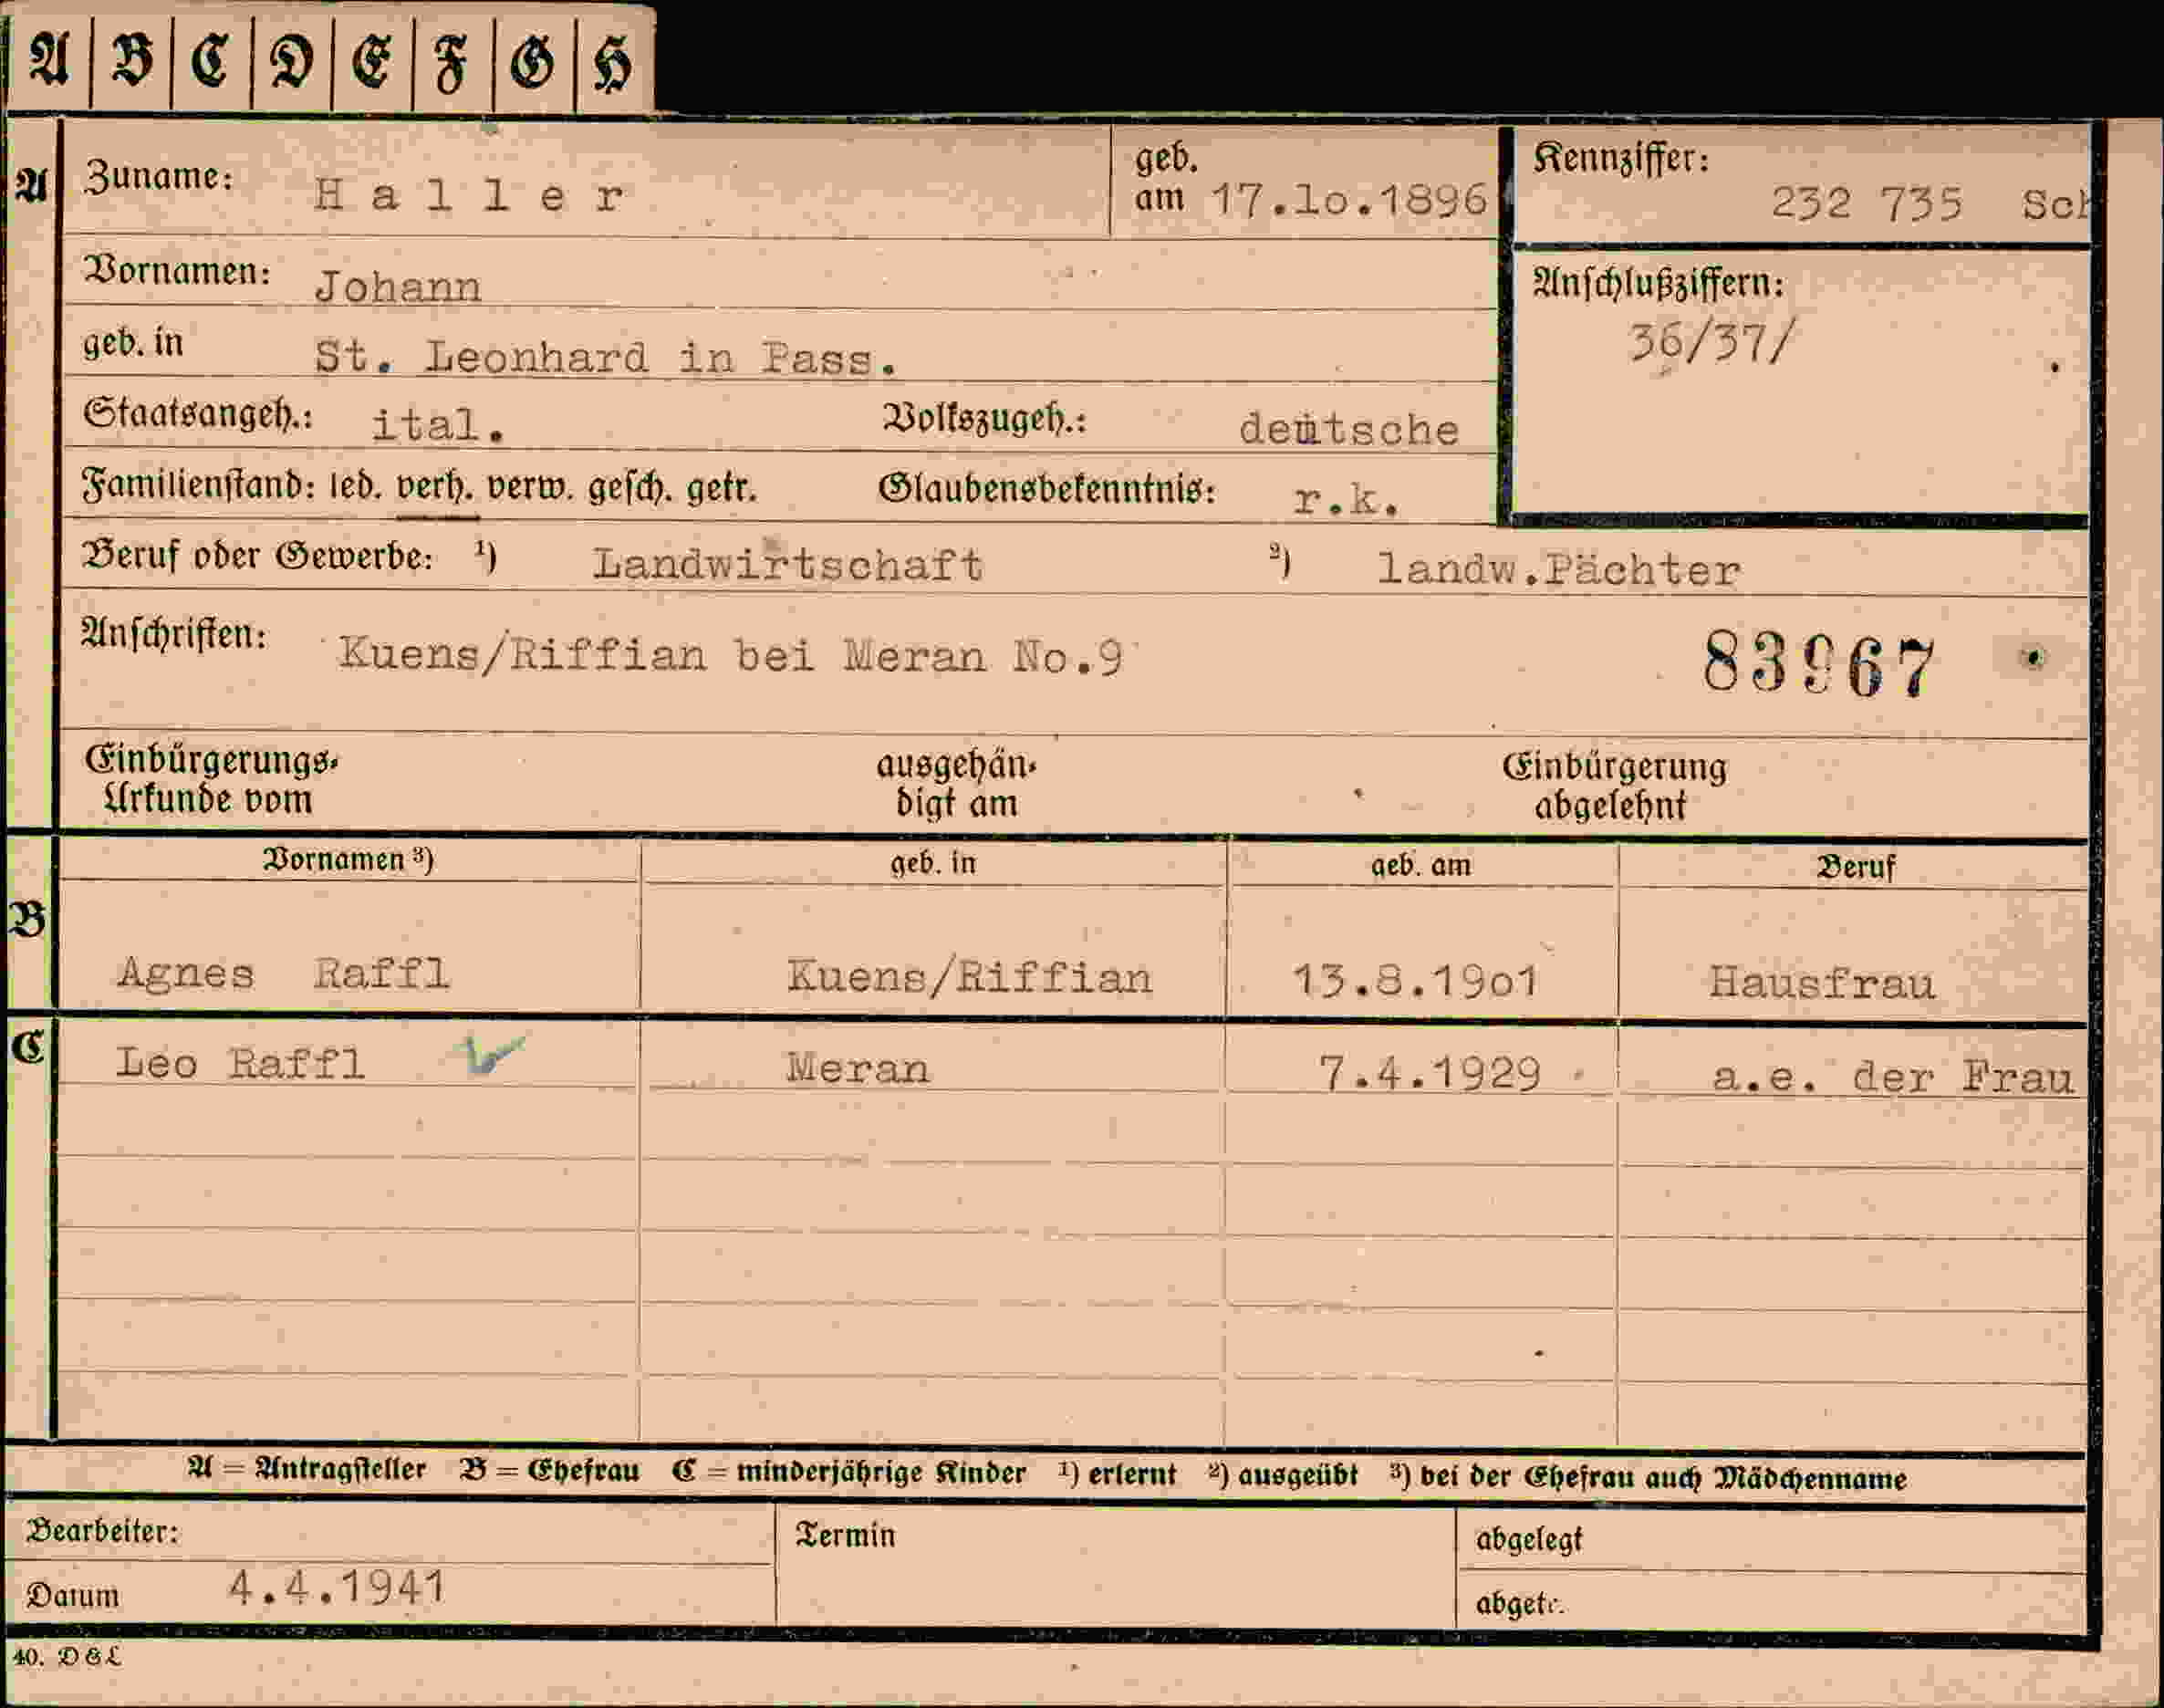 A B C D E F G H
A Zuname: Haller geb. am 17.1o.1896 Kennziffer: 232 735 Sch
Vornamen: Johann Anschlußziffern:
36/37/
geb. in St. Leonhard in Pass.
Staatsangeh.: ital. Volkszugeh.: deutsche
Familienstand: led. verh. verw. gesch. getr. Glaubensbekenntnis: r.k.
Beruf oder Gewerbe: 1) Landwirtschaft 2) landw.Pächter
Anschriften: Kuens/Riffian bei Meran No.9 83967
Einbürgerungs- ausgehän- Einbürgerung
Urkunde vom digt am abgelehnt
Vornamen 3) geb. in geb. am Beruf
B
Agnes Raffl Kuens/Riffian 13.8.19o1 Hausfrau
C Leo Raffl Meran 7.4.1929 a.e. der Frau
A = Antragsteller B = Ehefrau C = minderjährige Kinder 1) erlernt 2) ausgeübt 3) bei der Ehefrau auch Mädchenname
Bearbeiter: Termin abgelegt
Datum 4.4.1941 abgetr.
40. D & L